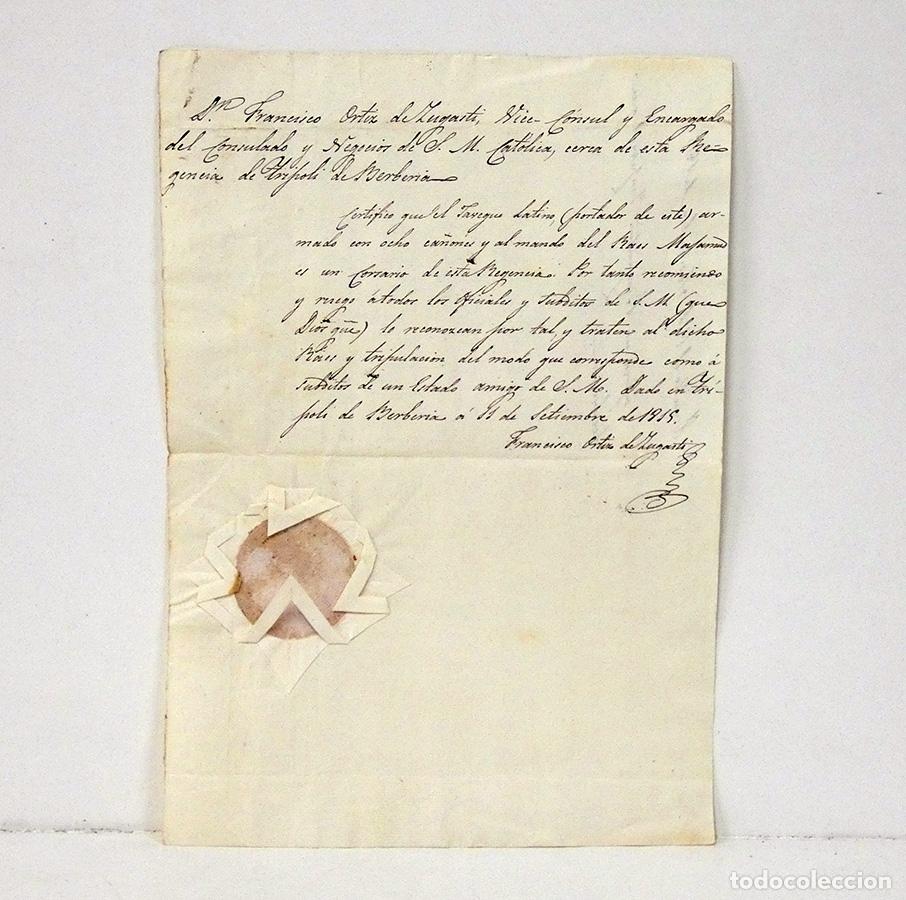 Dn. Francisco Ortiz de Zugasti, Vice-Cónsul y Encargado
del Consulado y Negocios de S. M. Católica, cerca de esta Re-
gencia de Trípoli de Berberia
Certifico que el Javeque Latino, (portador de este) ar-
mado con ocho cañones y al mando del Raes
es un Corsario de esta Regencia. Por tanto recomiendo
y ruego á todos los Oficiales y Subditos de S. M. (que
Dios gue) lo reconozcan por tal, y traten al dicho
Raes y tripulación del modo que corresponde como á
Subditos de un Estado amigo de S. M. Dado en Trí-
poli de Berberia á de Setiembre de 1815.
Francisco Ortiz de Zugasti
todocoleccion